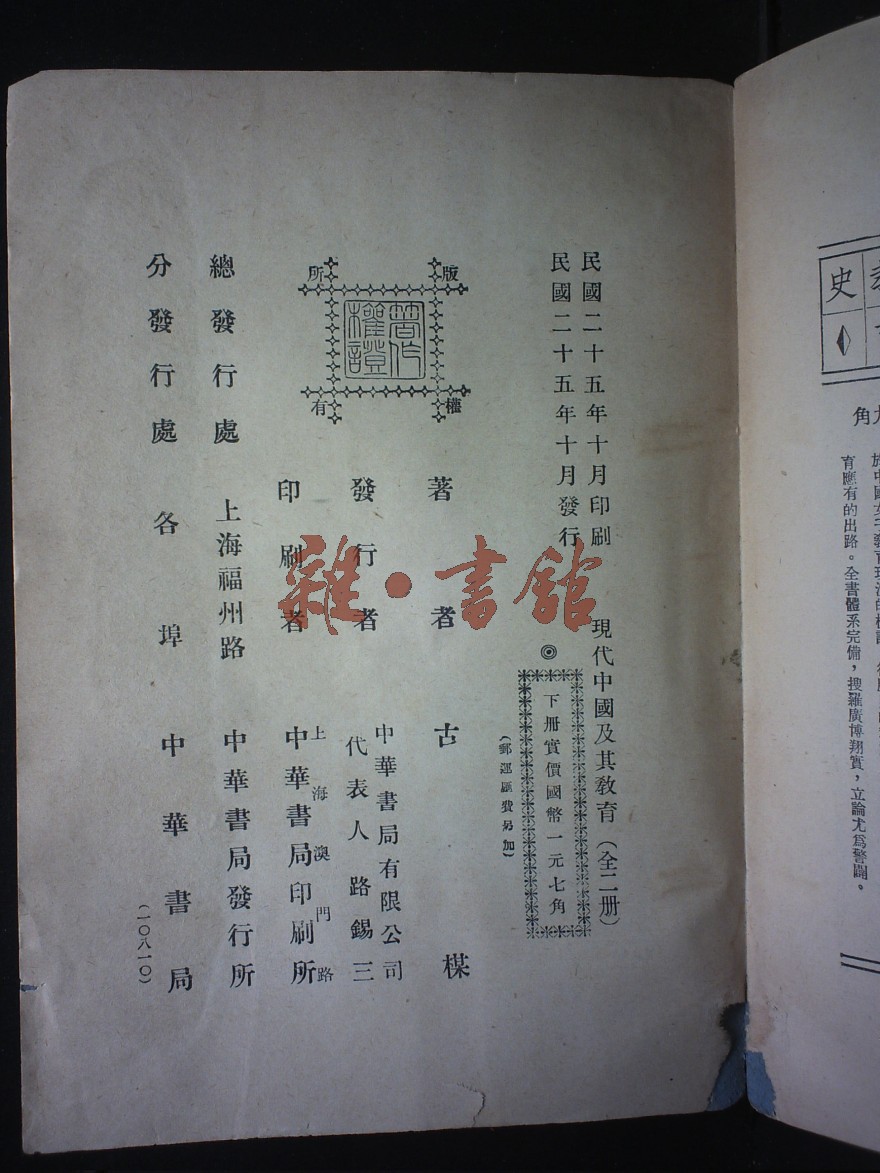 民國二十五年十月印刷
民國二十五年十月發行
現代中國及其教育（全二册）
◎
下册實價國幣一元七角
（郵運匯費另加）
版權所有
著作權證
著者 古楳
發行者 中華書局有限公司
代表人路錫三
印刷者 上海澳門路
中華書局印刷所
總發行處 上海福州路 中華書局發行所
分發行處 各埠 中華書局
（一〇八一〇）
雜·書館
史
角
育應有的出路。全書體系完備，搜羅廣博翔實，立論尤爲警闢。